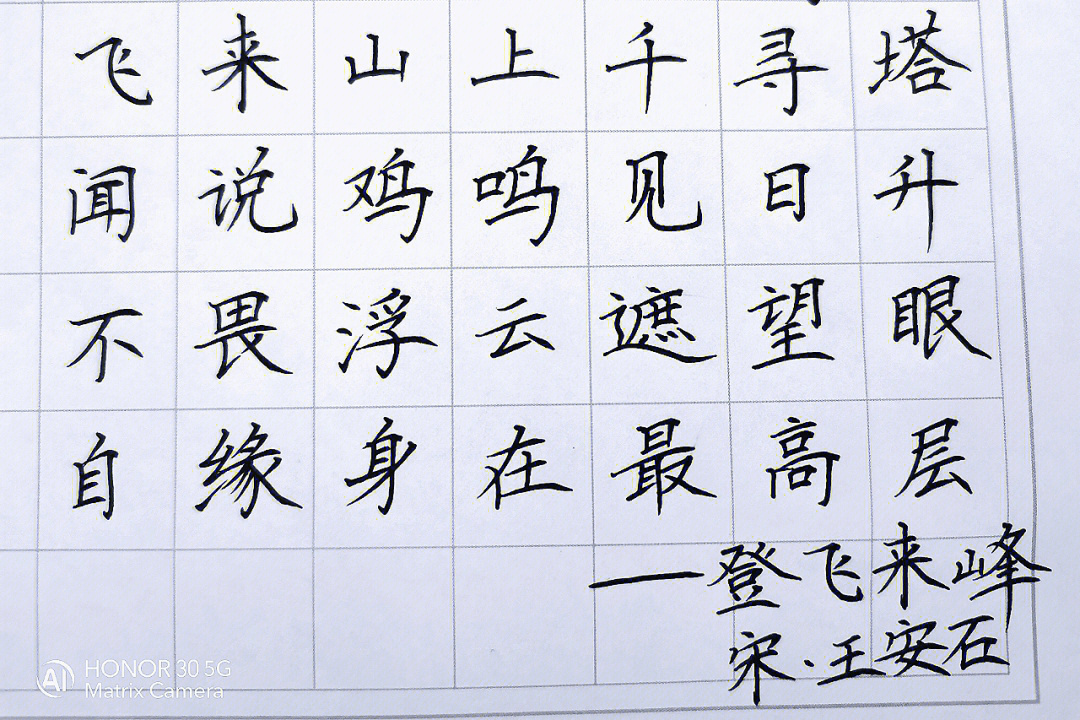 飞来山上千寻塔
闻说鸡鸣见日升
不畏浮云遮望眼
自缘身在最高层
——登飞来峰
宋·王安石
HONOR 30 5G
Matrix Camera